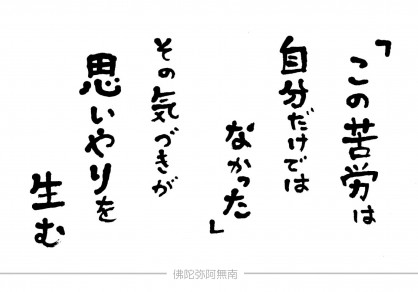 「この苦労は
自分だけでは
なかった」
その気づきが
思いやりを
生む
佛陀弥阿無南